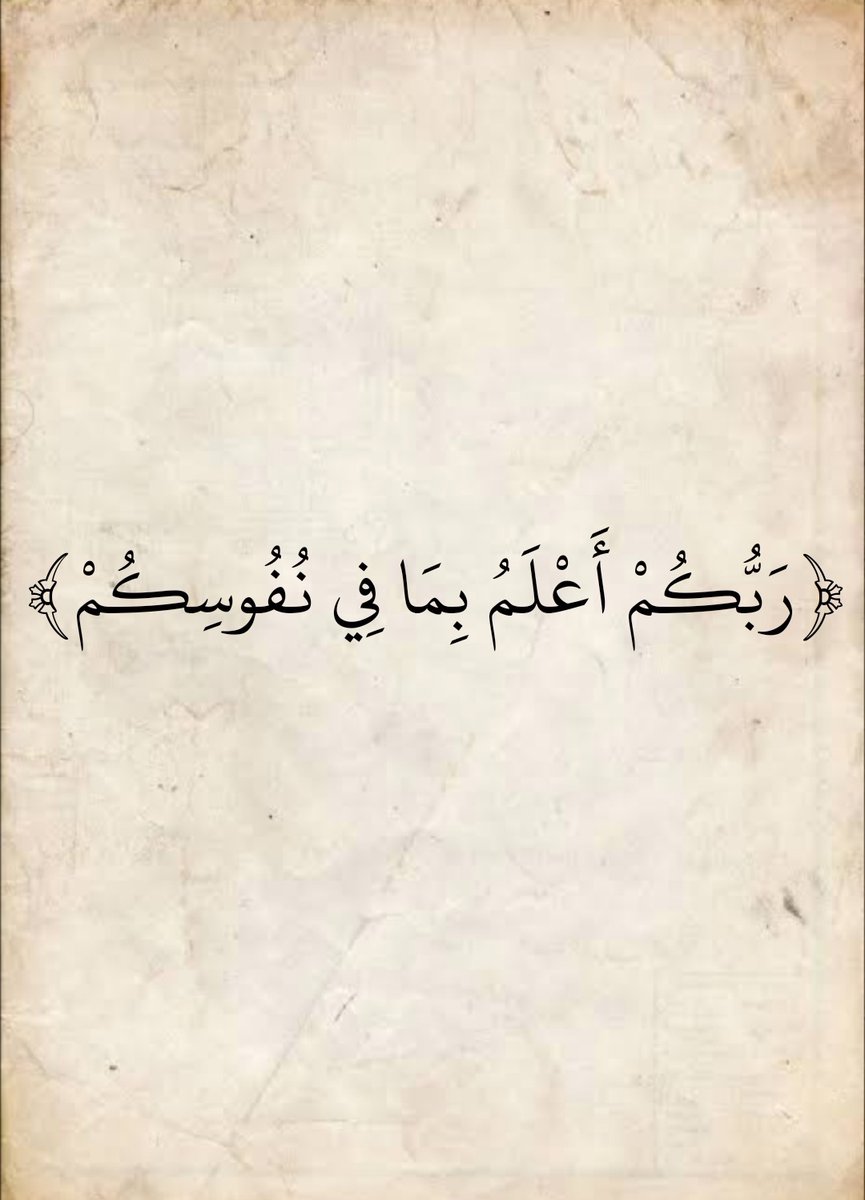 ﴿رَبُّكُمْ أَعْلَمُ بِمَا فِي نُفُوسِكُمْ﴾